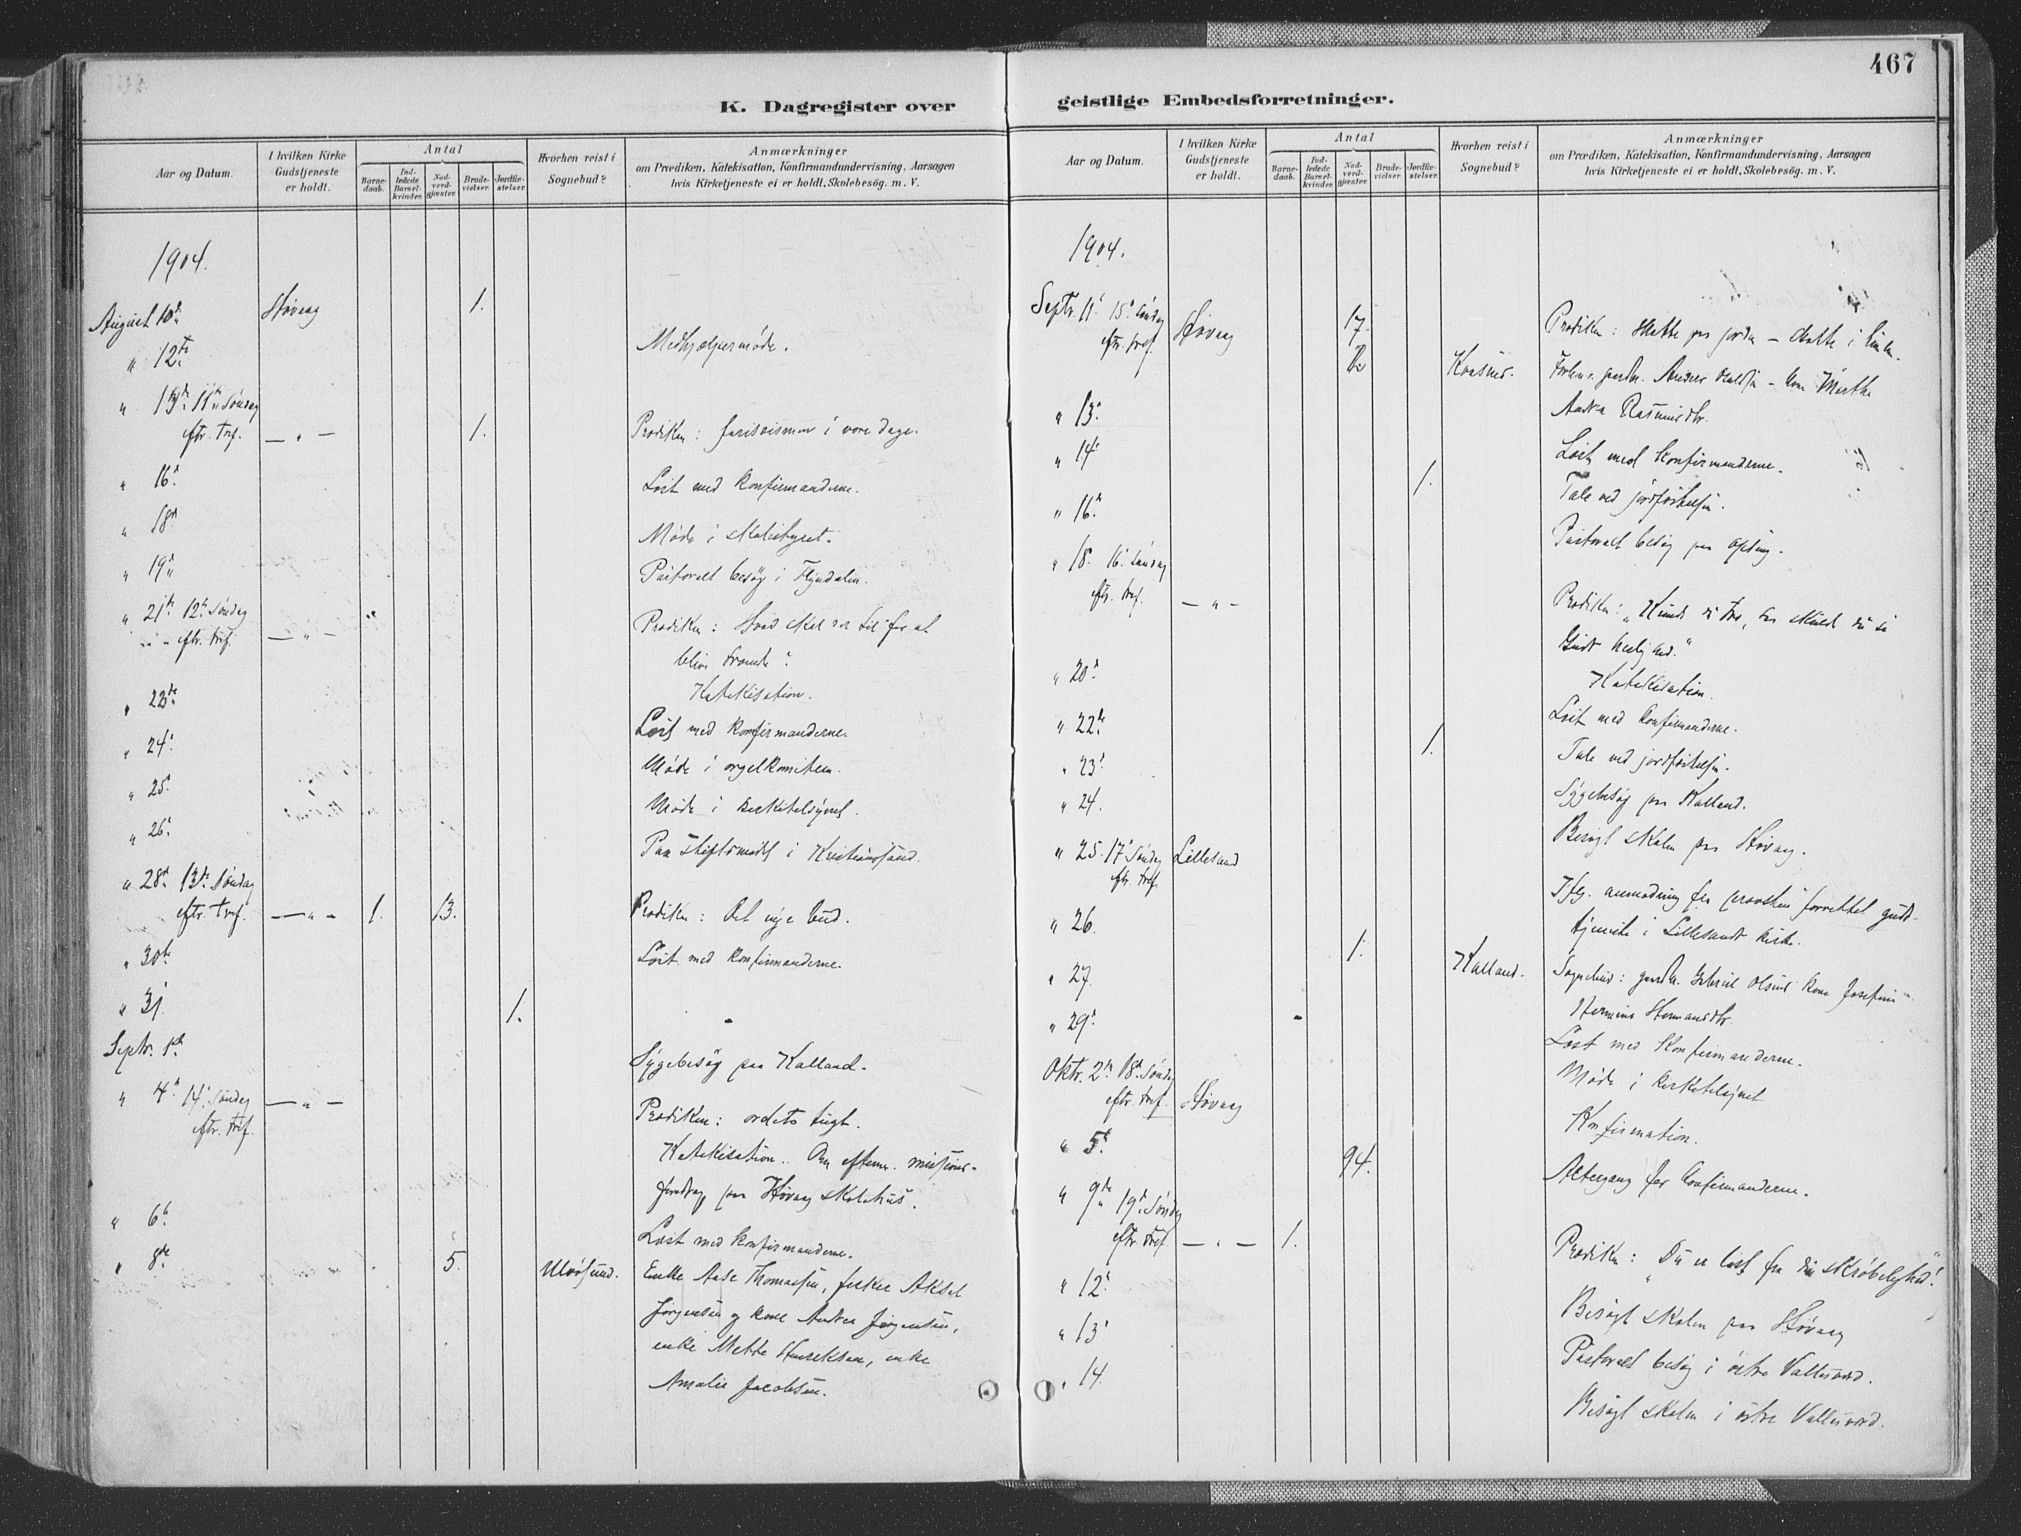 467
K. Dagregister over geistlige Embedsforretninger.
Aar og Datum.
I hvilken Kirke Gudstjeneste er holdt.
Antal
Barne-daab.
Ind-ledede Barsel-kvinder.
Nad-verd-gjæster.
Brude-vielser.
Jordfæ-stelser.
Hvorhen reist i Sognebud?
Anmærkninger
om Prædiken, Katekisation, Konfirmandundervisning, Aarsagen
hvis Kirketjeneste ei er holdt, Skolebesøg. m. V.
1904.
August 10de Høvaag 1.
" 12te Medhjælpermøde.
" 11te Søndag
eftr. Tref. — " — 1. Prædiken: farisæismen i vore dage.
" 16. Læst med konfirmanderne.
" 18 Møde i skolestyret.
" 19 Pastoralt besøg i Flyndalen.
" 21de 12te Søndag
eftr. tref. — " — Prædiken: Hvad skal der til for at
blive fromme?
Katekisation.
" 23de Læst med konfirmanderne.
" 24. Møde i orgelkomiteen.
" 25. Møde i kirketilsynet.
" 26. Paa stiftsmødet i Kristianssand.
" 28de 13de Søndag
eftr. Tref. — " — 1. 13. Prædiken: Det nye bud.
" 30te Læst med konfirmanderne.
" 31. 1.
Septr. 1ste Sygebesøg paa Kalland.
" 4. 14. Søndag — " —
eftr. tref. Prædiken: ordets tugt.
Katekisation. Om efterm. missions-
foredrag paa Høvaag skolehus.
" 6. Læst med konfirmanderne.
" 8de 5. Ulvøsund. Enke Aase Thomassen, fisker Aksel
Jørgensen og kone Andrea Jørgensen,
enke Mette Henriksen, enke
Amalie Jacobsen.
Aar og Datum.
I hvilken Kirke Gudstjeneste er holdt.
Antal
Barne-daab.
Ind-ledede Barsel-kvinder.
Nad-verd-gjæster.
Brude-vielser.
Jordfæ-stelser.
Hvorhen reist i Sognebud?
Anmærkninger
om Prædiken, Katekisation, Konfirmandundervisning, Aarsagen
hvis Kirketjeneste ei er holdt, Skolebesøg. m. V.
1904.
Septr. 11. 15. Søndag
eftr. tref. Høvaag 17. Prædiken: Skatte paa jorden — skatte i himlen.
2 Kvasnes.
" 13.
" 14 Læst med konfirmanderne.
1. Tale ved jordfæstelsen.
" 16. Pastoralt besøg paa
" 18. 16. Søndag
eftr. tref. — " — Prædiken: "Kunde du tro, da skulde du se
Guds herlighed."
Katekisation.
" 20. Læst med konfirmanderne.
" 22de 1. Tale ved jordfæstelsen.
" 23. Sygebesøg paa Kalland.
" 24. Besøgt skolen paa Høvaag.
" 25. 17. Søndag Lillesand
eftr. tref. Ifg. anmodning fra provsten forrettet guds-
tjeneste i Lillesands kirke.
" 26. 1. Kalland. Sognebud: gaardbr. Gabriel Olsens kone Josefine
Hermine Hermansdtr.
" 27. Læst med konfirmanderne.
" 29. Møde i kirketilsynet
Oktr. 2den 18de Søndag
eftr. tref. Høvaag Konfirmation.
" 5. 94. Altergang for konfirmanderne.
" 9de 19de Søndag
eftr. tref — " — 1. Prædiken: "Du er løst fra din skrøbelighed".
" 12. Besøgt skolen paa Høvaag
" 13 Pastoralt besøg i østre Vallesværd.
" 14. Besøgt skolen i østre Vallesværd.